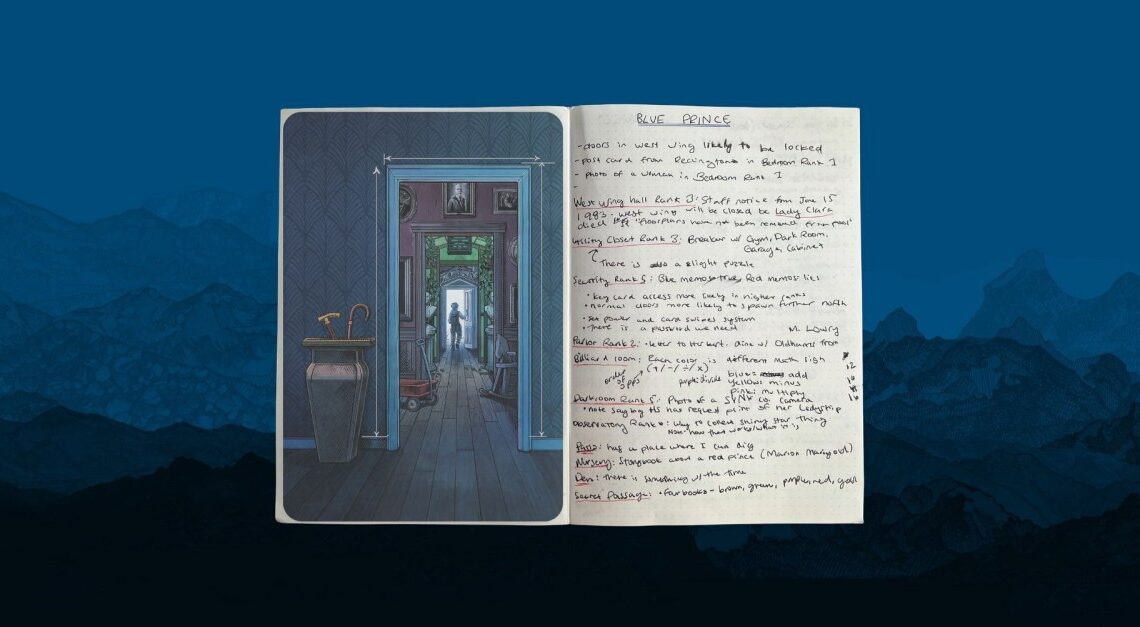 BLUE PRINCE
- doors in west wing likely to be locked
- post card from Reddington in Bedroom Rank 1
- photo of a woman in Bedroom Rank 1
-
West Wing hall Rank 3: Staff notice from June 15
1983. west wing will be closed bc Lady Clara
died "floorplans have not been removed from pool"
Utility Closet Rank 3: Breaker w/ Gym, Dark Room,
Garage, Cabinet
There is also a slight puzzle
Security Rank 5: Blue memos true, Red memos lies
• Key card access more likely in higher ranks
• normal doors more likely to spawn further north
• set power and card swipes system
• There is a password we need
M. Lowry
Parlor Rank 2: • letter to Herbert. dine w/ from
Billiard room: Each color is different math sign
order of opps (+/-/÷/x)
purple: divide
blue: add
Yellow: minus
Pink: multiply
12
10
16
Darkroom Rank 5: Photo of a co. camera
• note saying HS has request print of her Ladyship
Observatory Rank : Way to collect shiny star thing
Patio: has a place where I can dig
Nursery: Storybook about a red prince (Marion Marigold)
Den: there is something w/ the time
Secret Passage: • four books - brown, green, purple, red, gold